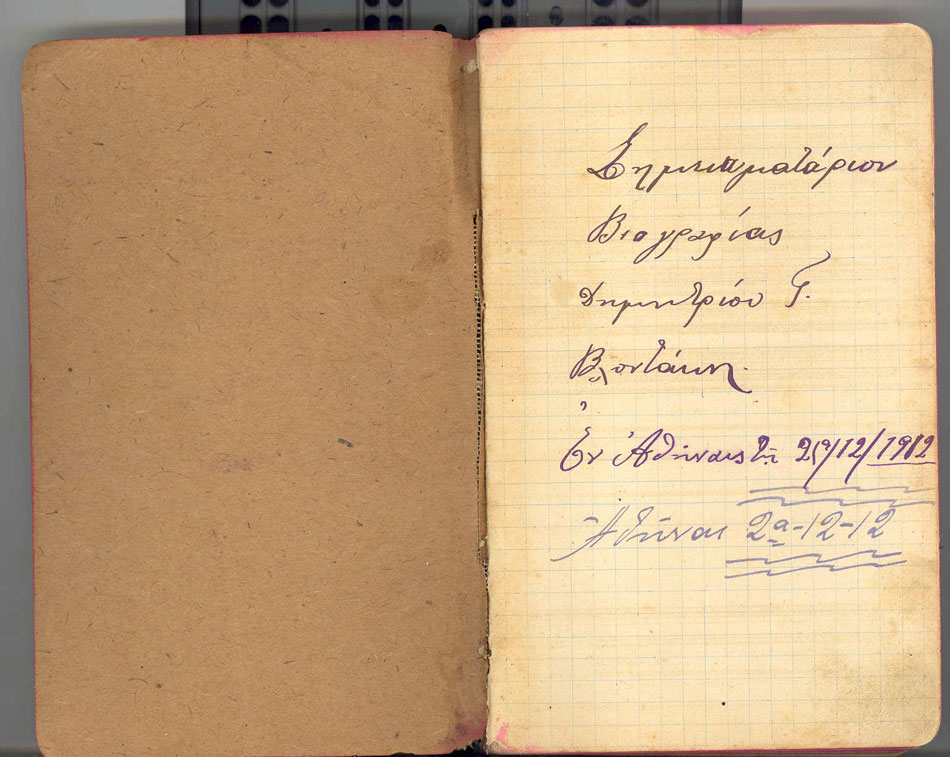 Σημειωματάριον
Βιογραφίας
Δημητρίου Γ.
Βλοντάκη.
Ἐν Ἀθήναις τῇ 2(α)/12/1912
Ἀθῆναι 2α-12-12